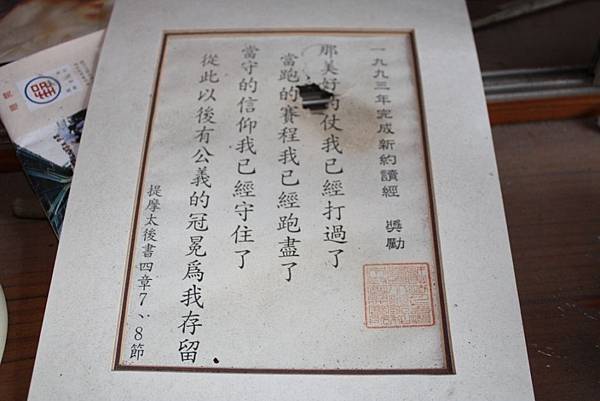 一九九三年完成新約讀經 獎勵
那美好的仗我已經打過了
當跑的賽程我已經跑盡了
當守的信仰我已經守住了
從此以後有公義的冠冕爲我存留
提摩太後書四章7、8節